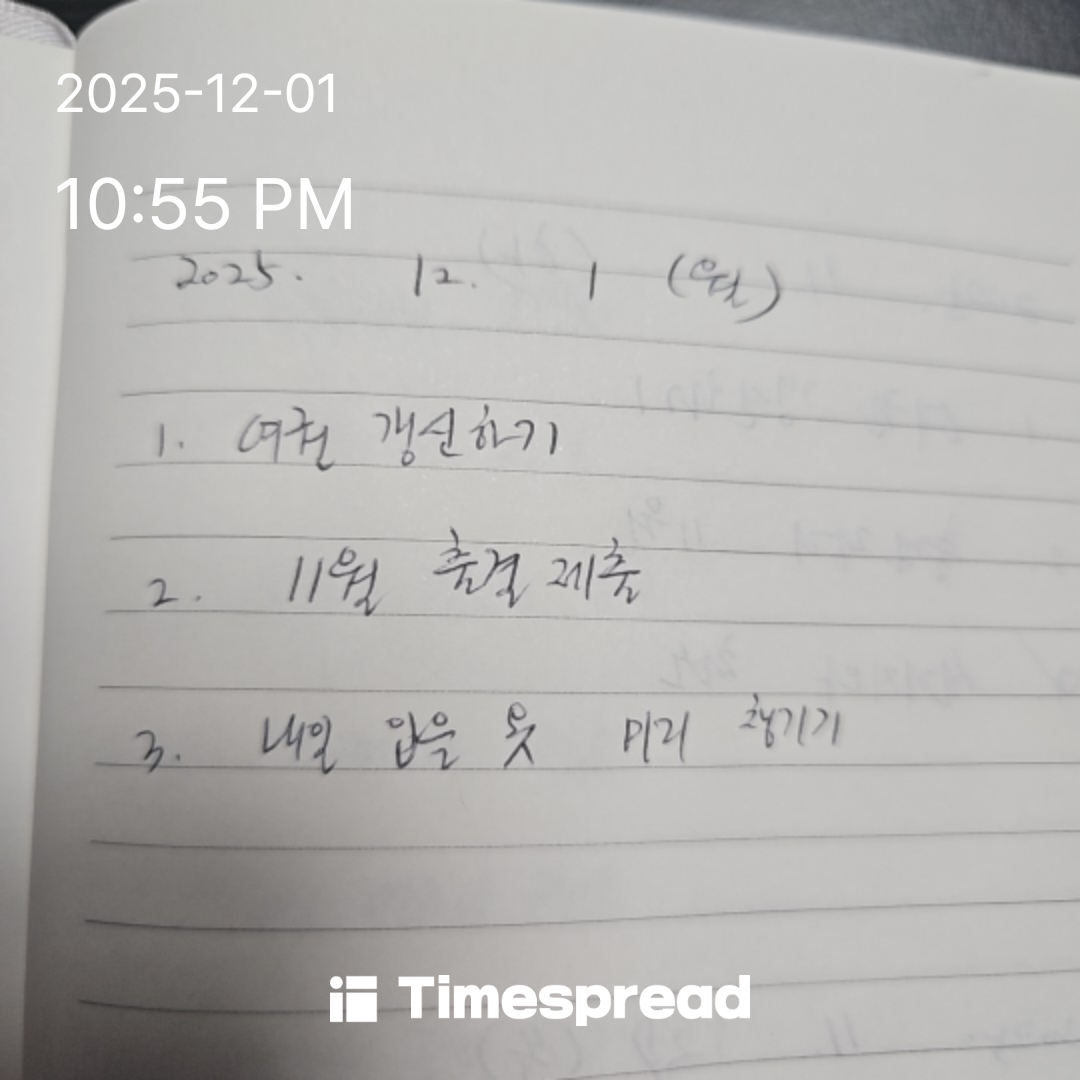 2025-12-01
10:55 PM
2025. 12. 1 (월)
1. 여권 갱신하기
2. 11월 출결 제출
3. 내일 입을 옷 미리 챙기기
Timespread